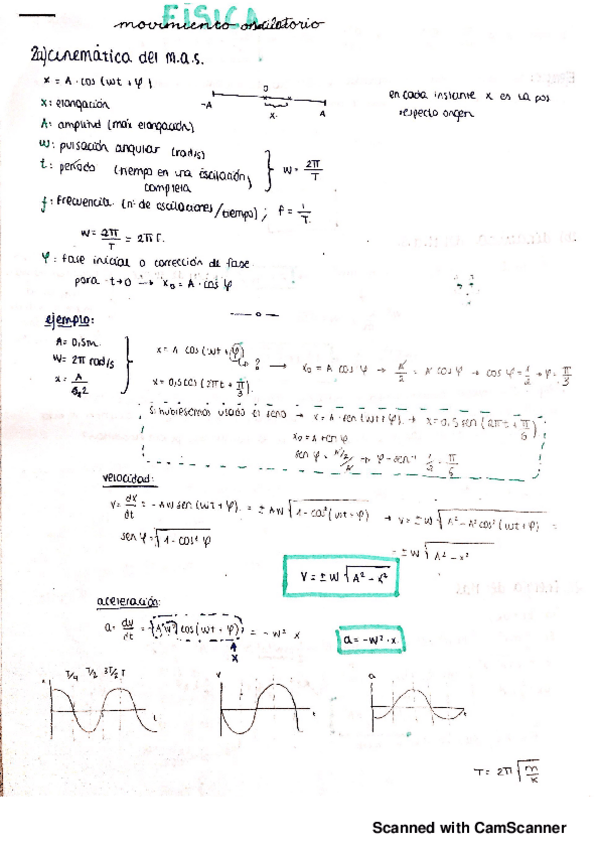 FÍSICA
movimiento oscilatorio
2a) cinemática del m.a.s.
x = A · cos (wt + φ)
-A 0 A
x
en cada instante x es la pos
respecto origen
x: elongación
A: amplitud (máx elongación)
w: pulsación angular (rad/s)
t: período (tiempo en una oscilación completa) } w = 2π/T
f: frecuencia (nº de oscilaciones/tiempo) ; f = 1/T
w = 2π/T = 2π f.
φ: fase inicial o corrección de fase
para t→0 → x₀ = A · cos φ
ejemplo:
A = 0,5m
w = 2π rad/s
x = A/2
x = A cos (wt + φ) → ? → x₀ = A cos φ → A/2 = A cos φ → cos φ = 1/2 → φ = π/3
x = 0,5 cos (2πt + π/3).
Si hubiésemos usado el seno → x = A · sen (wt + φ) → x = 0,5 sen (2πt + π/6)
x₀ = A sen φ
sen φ = A/2/A → φ = sen⁻¹ 1/2 = π/6
velocidad:
v = dx/dt = -Aw sen (wt + φ) = ± Aw √1 - cos²(wt + φ) → v = ± w √A² - A² cos² (wt + φ) =
sen φ = √1 - cos² φ
= ± w √A² - x²
v = ± w √A² - x²
aceleración:
a = dv/dt = -A w² cos (wt + φ) = - w² x
x
a = -w² · x
x T/4 T/2 3T/2 T t
v t
a t
T = 2π √m/k
Scanned with CamScanner